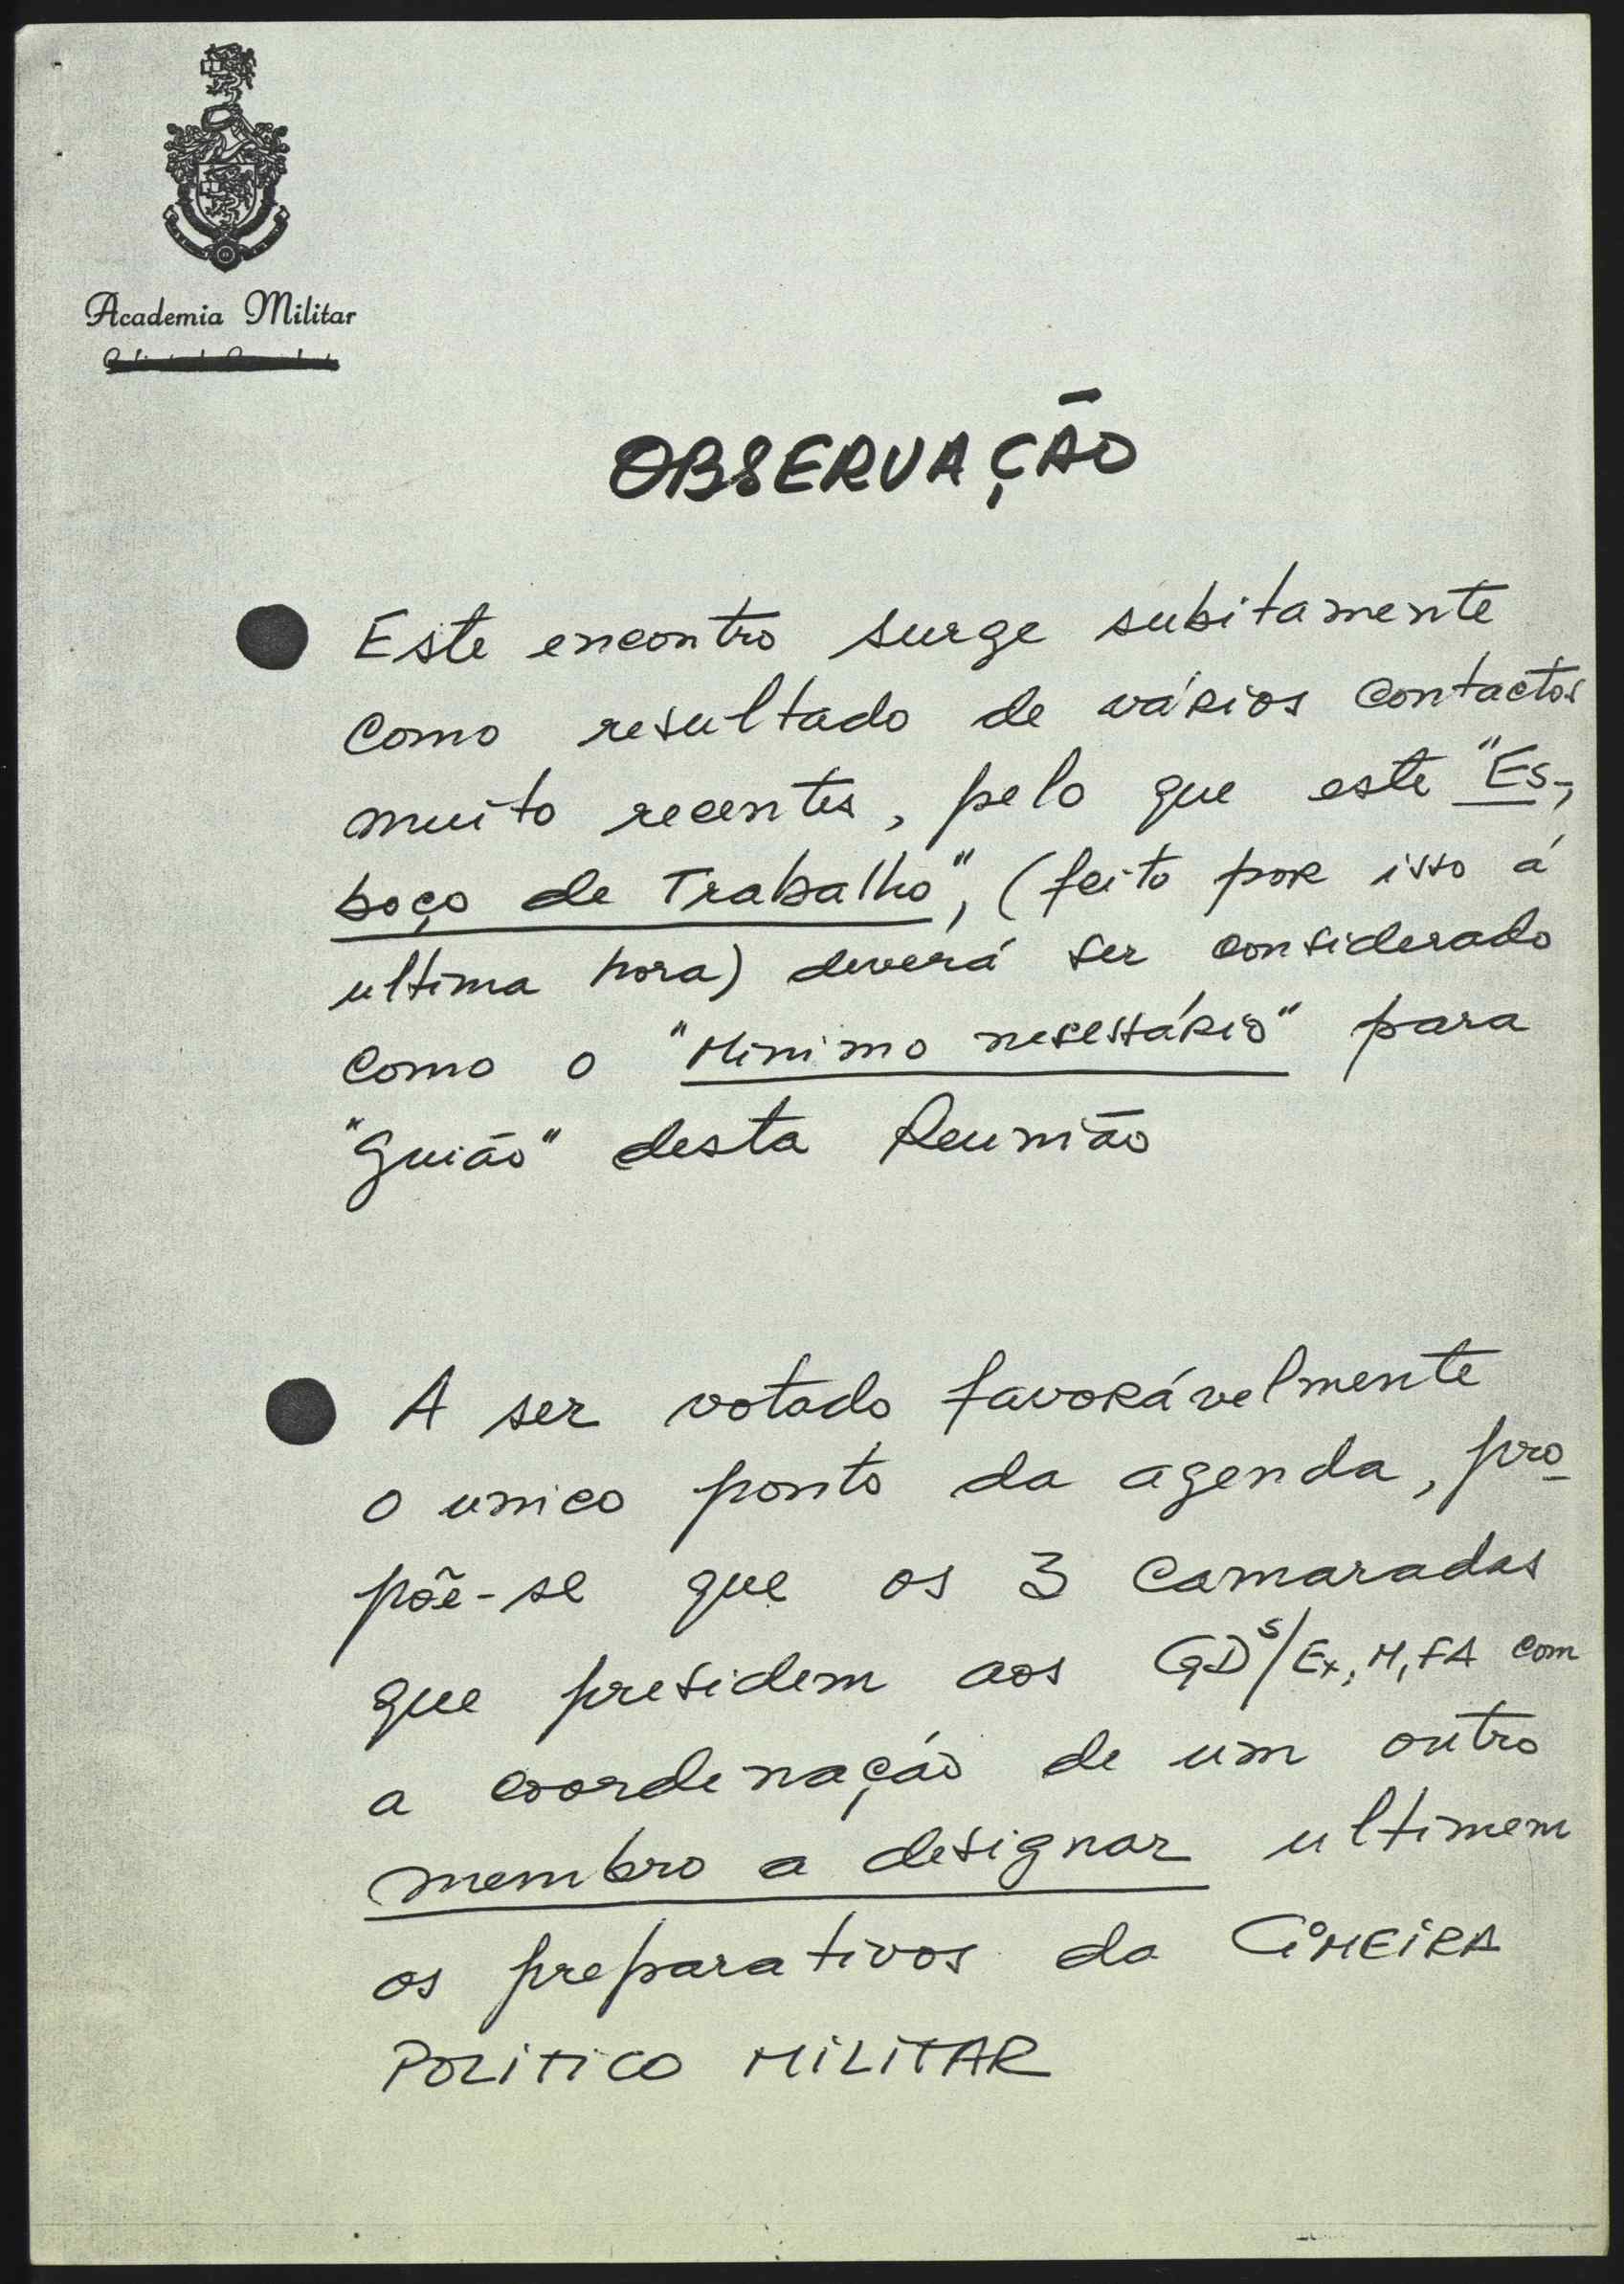 Academia Militar
OBSERVAÇÃO
Este encontro surge subitamente
como resultado de vários contactos
muito recentes, pelo que este "Es-
boço de Trabalho", (feito por isso á
ultima hora) deverá ser considerado
como o "Minimo necessário" para
"Guião" desta Reunião
A ser votado favorávelmente
o unico ponto da agenda, pro-
põe-se que os 3 camaradas
que presidem aos GDs/Ex, M, FA com
a coordenação de um outro
membro a designar ultimem
os preparativos da CiMEiRA
POLiTiCO MiLiTAR